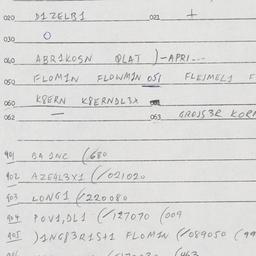 020 D1ZELB1 021 +
030 0
040 ABR1KOSN QLAT )-APRI...
050 FLOM1N FLOWM1N 051 FLEJMEL1 F
060 K8ERN K8ERNDL3X
062 — 063 GROJS3R KOR
401 BA 1NC (680
402 AZEQL3X1 (/021020
403 LONG1 (/220080
404 POV1,DL1 (/127070 (009
405 )1NG83R1S+1 FLOM1N (/089050 (99